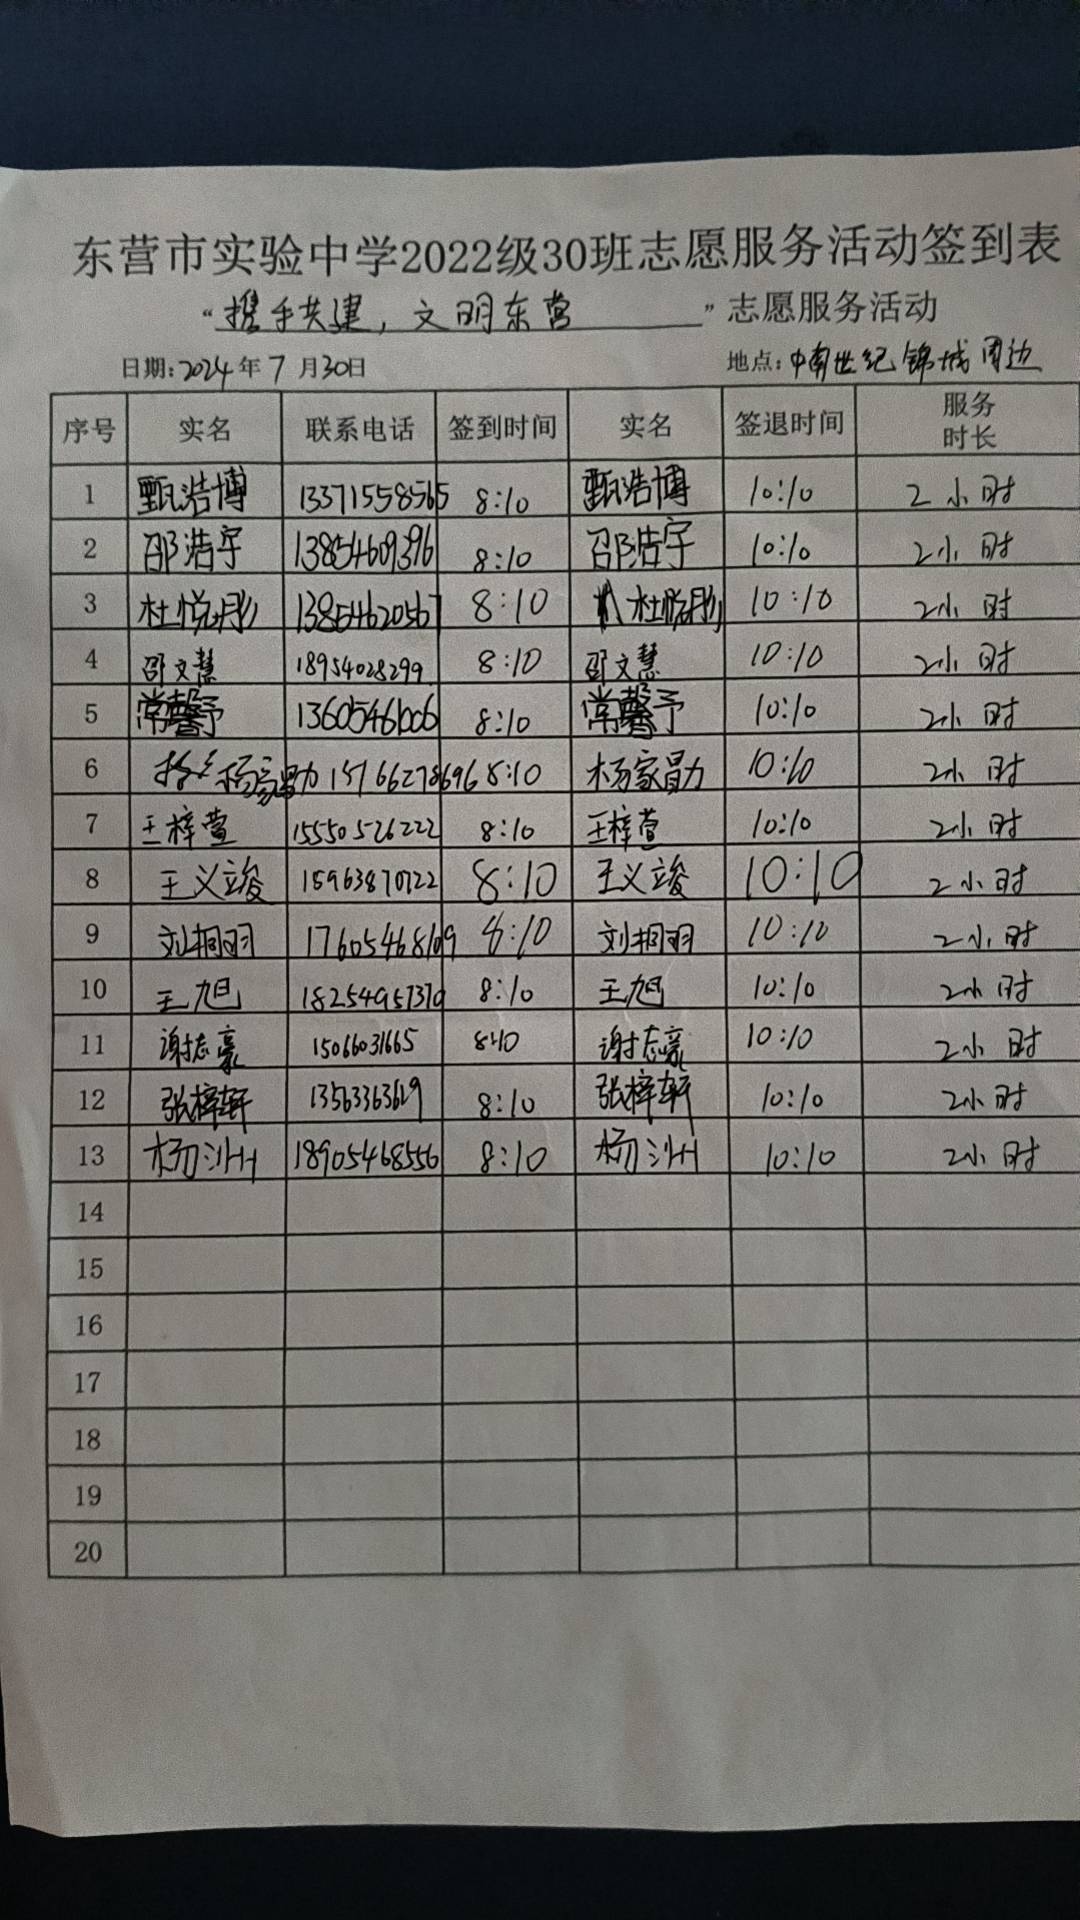 东营市实验中学2022级30班志愿服务活动签到表
“携手共建，文明东营”志愿服务活动
日期:2024年7月30日 地点:中南世纪锦城周边
序号 实名 联系电话 签到时间 实名 签退时间 服务时长
1 甄浩博 13371558565 8:10 甄浩博 10:10 2小时
2 邵浩宇 13854609396 8:10 邵浩宇 10:10 2小时
3 杜悦彤 13854620567 8:10 杜悦彤 10:10 2小时
4 邵文慧 18954028299 8:10 邵文慧 10:10 2小时
5 常馨予 13605461006 8:10 常馨予 10:10 2小时
6 杨家勖 15766278696 8:10 杨家勖 10:10 2小时
7 王梓萱 15550526222 8:10 王梓萱 10:10 2小时
8 王义竣 15963870722 8:10 王义竣 10:10 2小时
9 刘桐羽 17605468109 8:10 刘桐羽 10:10 2小时
10 王旭 18254957370 8:10 王旭 10:10 2小时
11 谢志豪 15066031665 8:10 谢志豪 10:10 2小时
12 张梓轩 13563363619 8:10 张梓轩 10:10 2小时
13 杨洲 18905468556 8:10 杨洲 10:10 2小时
14
15
16
17
18
19
20